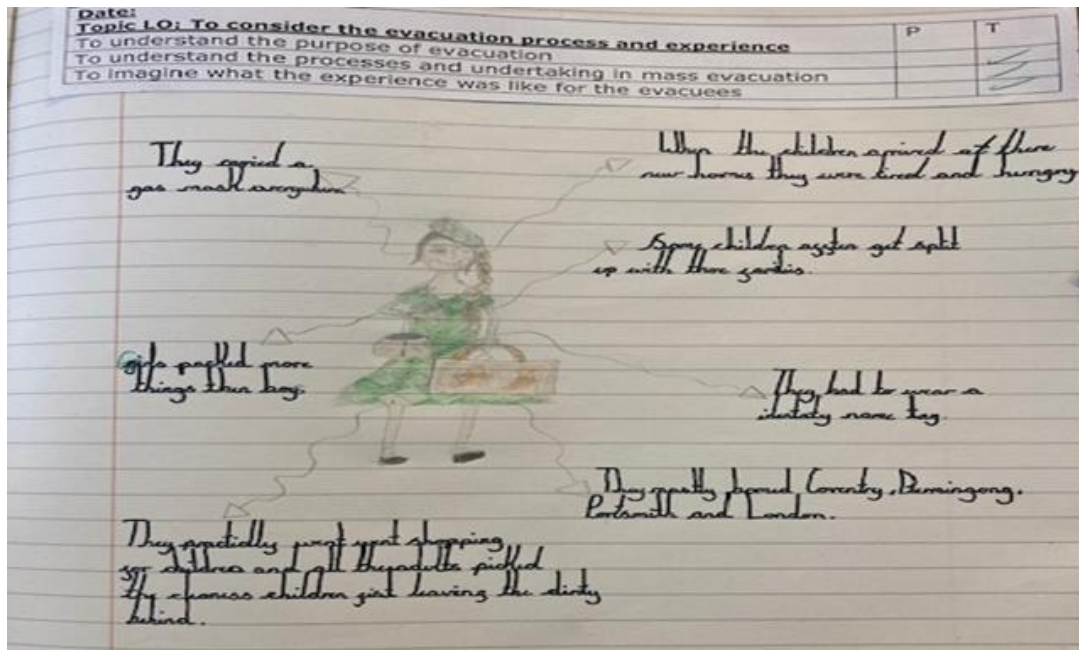 Date:
Topic LO: To consider the evacuation process and experience
P
T
To understand the purpose of evacuation
To understand the processes and undertaking in mass evacuation
To imagine what the experience was like for the evacuees
They carried a
gas mask
When the children arrived at there
new homes they were tired and hungry
Some children get split
up with there
girls packed more
things then boy.
They had to wear a
identaty name tag.
They mostly Coventry,
Portsmith and London.
They practidly went went shopping
for children and all the adults picked
children first leaving the dirty
behind.